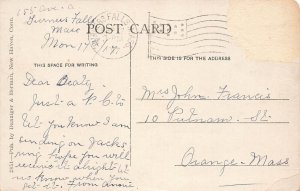 155 Ave-a
Turners Falls
Mass
Mon 17
POST CARD
THIS SPACE FOR WRITING
THIS SIDE IS FOR THE ADDRESS
Dear Beaty.
Just a P.C. to
let you know I am
sending on Jacks
ring hope you will
receive it alright let
us know when you
get it. From Annie
Mrs John Francis
10 Putnam-St
Orange-Mass
Pub. by Danziger & Berman, New Haven, Conn.